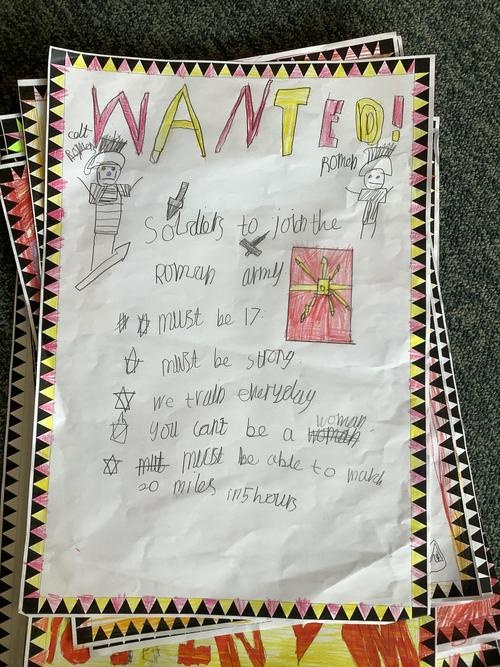 WANTED!
celt
Roman
Roman
Soldiers to join the
Roman army
must be 17.
must be strong.
we train everyday
you cant be a woman.
must be able to march
20 miles in 5 hours